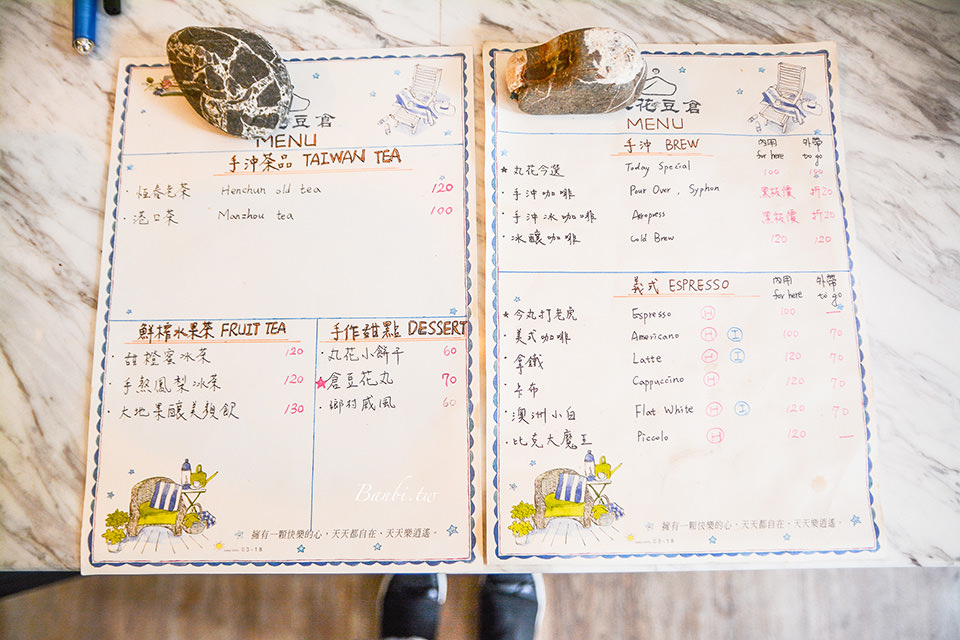 花豆倉
MENU
手沖茶品 TAIWAN TEA
· 恆春老茶 Henchun old tea 120
· 港口茶 Manzhou tea 100
鮮榨水果茶 FRUIT TEA
· 甜橙蜜冰茶 120
· 手熬鳳梨冰茶 120
· 大地果釀美顏飲 130
手作甜點 DESSERT
· 丸花小餅干 60
★ 倉豆花丸 70
· 鄉村戚風 60
Banbi.tw
擁有一顆快樂的心,天天都自在、天天樂逍遙。
03-18
花豆倉
MENU
手沖 BREW 內用 for here 外帶 to go
★ 丸花今選 Today Special 100
· 手沖咖啡 Pour Over , Syphon 黑板價 折20
· 手沖冰咖啡 Aeropress 黑板價 折20
· 冰釀咖啡 Cold Brew 120 120
義式 ESPRESSO 內用 for here 外帶 to go
★ 今丸打老虎 Espresso H 100 —
· 美式咖啡 Americano H I 100 70
· 拿鐵 Latte H I 120 70
· 卡布 Cappuccino H 120 70
· 澳洲小白 Flat White H I 120 70
· 比克大魔王 Piccolo H 120 —
擁有一顆快樂的心,天天都自在、天天樂逍遙。
03-18